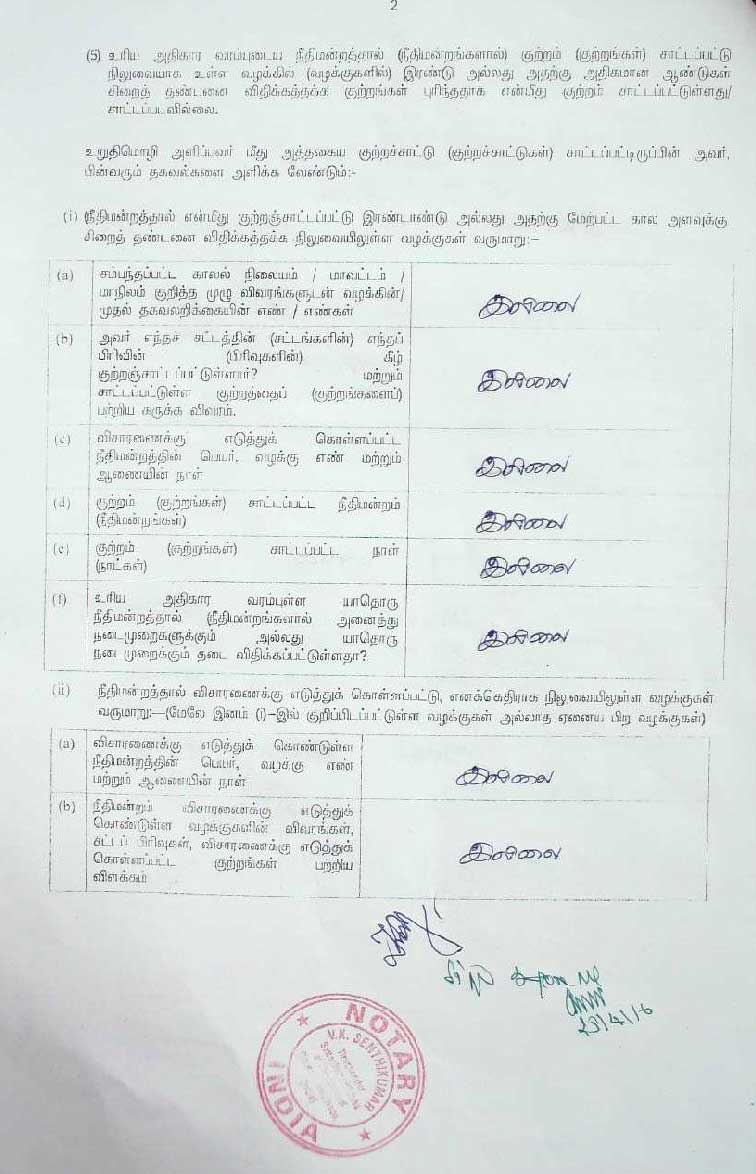 2
(5) உரிய அதிகார வரம்புடைய நீதிமன்றத்தால் (நீதிமன்றங்களால்) குற்றம் (குற்றங்கள்) சாட்டப்பட்டு
நிலுவையாக உள்ள வழக்கில் (வழக்குகளில்) இரண்டு அல்லது அதற்கு அதிகமான ஆண்டுகள்
சிறைத் தண்டனை விதிக்கத்தக்க குற்றங்கள் புரிந்ததாக என்மீது குற்றம் சாட்டப்பட்டுள்ளது/
சாட்டப்படவில்லை.
உறுதிமொழி அளிப்பவர் மீது அத்தகைய குற்றச்சாட்டு (குற்றச்சாட்டுகள்) சாட்டப்பட்டிருப்பின் அவர்,
பின்வரும் தகவல்களை அளிக்க வேண்டும்:-
(i) நீதிமன்றத்தால் என்மீது குற்றஞ்சாட்டப்பட்டு இரண்டாண்டு அல்லது அதற்கு மேற்பட்ட கால அளவுக்கு
சிறைத் தண்டனை விதிக்கத்தக்க நிலுவையிலுள்ள வழக்குகள் வருமாறு:-
(a) சம்பந்தப்பட்ட காவல் நிலையம் / மாவட்டம் /
மாநிலம் குறித்த முழு விவரங்களுடன் வழக்கின்/
முதல் தகவலறிக்கையின் எண் / எண்கள்
இல்லை
(b) அவர் எந்தச் சட்டத்தின் (சட்டங்களின்) எந்தப்
பிரிவின் (பிரிவுகளின்) கீழ்
குற்றஞ்சாட்டப்பட்டுள்ளார்? மற்றும்
சாட்டப்பட்டுள்ள குற்றத்தைப் (குற்றங்களைப்)
பற்றிய சுருக்க விவரம்.
இல்லை
(c) விசாரணைக்கு எடுத்துக் கொள்ளப்பட்ட
நீதிமன்றத்தின் பெயர், வழக்கு எண் மற்றும்
ஆணையின் நாள்
இல்லை
(d) குற்றம் (குற்றங்கள்) சாட்டப்பட்ட நீதிமன்றம்
(நீதிமன்றங்கள்)
இல்லை
(e) குற்றம் (குற்றங்கள்) சாட்டப்பட்ட நாள்
(நாட்கள்)
இல்லை
(f) உரிய அதிகார வரம்புள்ள யாதொரு
நீதிமன்றத்தால் (நீதிமன்றங்களால் அனைத்து
நடைமுறைகளுக்கும் அல்லது யாதொரு
நடைமுறைக்கும் தடை விதிக்கப்பட்டுள்ளதா?
இல்லை
(ii) நீதிமன்றத்தால் விசாரணைக்கு எடுத்துக் கொள்ளப்பட்டு, எனக்கெதிராக நிலுவையிலுள்ள வழக்குகள்
வருமாறு:—(மேலே இனம் (i)–இல் குறிப்பிடப்பட்டுள்ள வழக்குகள் அல்லாத ஏனைய பிற வழக்குகள்)
(a) விசாரணைக்கு எடுத்துக் கொண்டுள்ள
நீதிமன்றத்தின் பெயர், வழக்கு எண்
மற்றும் ஆணையின் நாள்
இல்லை
(b) நீதிமன்றம் விசாரணைக்கு எடுத்துக்
கொண்டுள்ள வழக்குகளின் விவரங்கள்,
சட்டப் பிரிவுகள், விசாரணைக்கு எடுத்துக்
கொள்ளப்பட்ட குற்றங்கள் பற்றிய
விளக்கம்
இல்லை
23/4/16
NOTARY
V.K. SENTHILKUMAR
INDIA